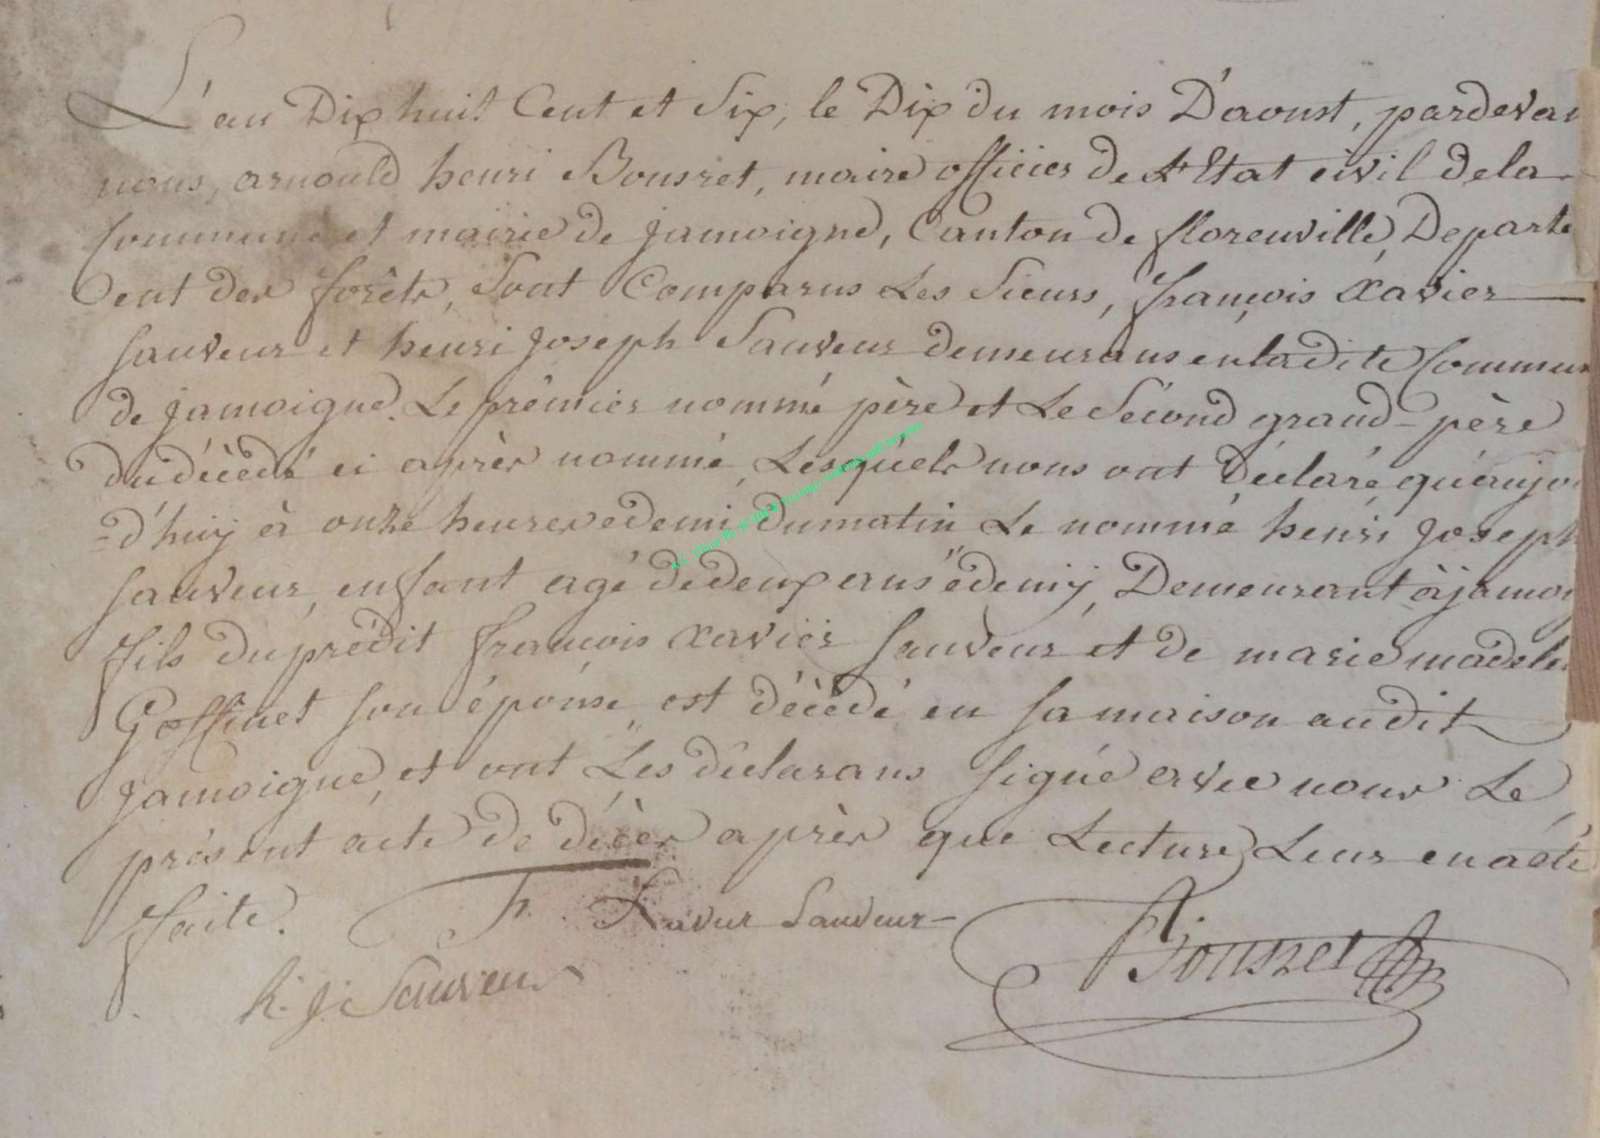 L'an Dix huit Cent et Six, le Dix du mois D'aoust, pardevan
nous, arnould henri Bousret, maire officier de l'Etat civil de la
Commune et mairie de jamoigne, Canton de florenville, Departe
ent des forêts, Sont Comparus Les Sieurs, françois Xavier
Sauveur et henri joseph Sauveur demeurans en ladite Commun
de jamoigne. Le prémier nommé père et Le Sécond grand-père
du décédé ci après nommé, Lesquels nous ont Déclaré, qu'aujou
=d'huy à onze heures edemi du matin Le nommé henri joseph
Sauveur, enfant agé de deux ans edemij, Demeurant à jamoi
fils du prédit françois Xavier Sauveur et de marie madele
Goffinet son épouse, est décédé en sa maison audit
jamoigne, et ont Les déclarans signé avec nous Le
présent acte de décès après que Lecture Leur en a été
faite. F. Xavier Sauveur
h. j. Sauveur Bousret